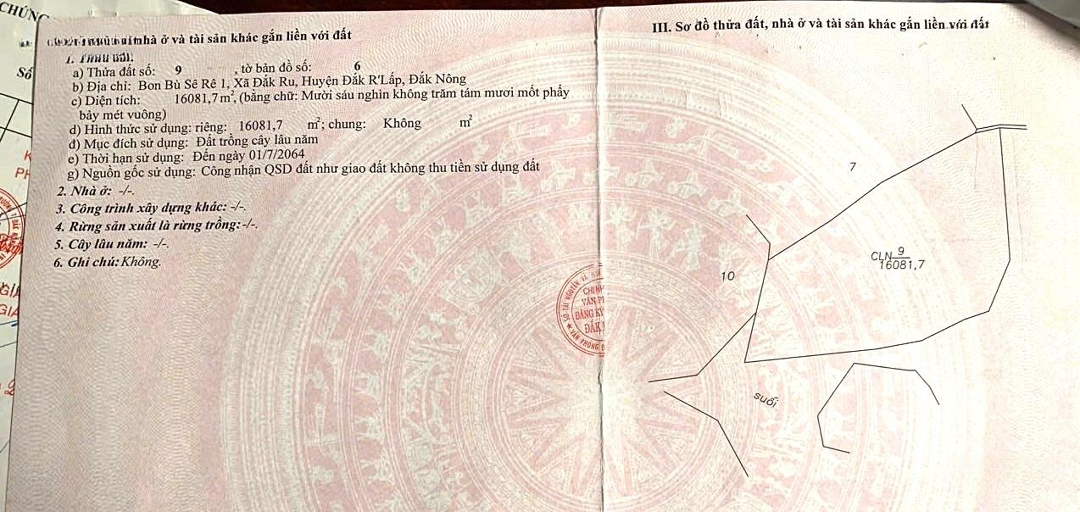 CHỨNG
Số
nhà ở và tài sản khác gắn liền với đất
1. Thửa đất:
a) Thửa đất số: 9 , tờ bản đồ số: 6
b) Địa chỉ: Bon Bù Sê Rê 1, Xã Đắk Ru, Huyện Đắk R'Lấp, Đắk Nông
c) Diện tích: 16081,7 m², (bằng chữ: Mười sáu nghìn không trăm tám mươi mốt phẩy
bảy mét vuông)
d) Hình thức sử dụng: riêng: 16081,7 m²; chung: Không m²
đ) Mục đích sử dụng: Đất trồng cây lâu năm
e) Thời hạn sử dụng: Đến ngày 01/7/2064
g) Nguồn gốc sử dụng: Công nhận QSD đất như giao đất không thu tiền sử dụng đất
2. Nhà ở: -/-.
3. Công trình xây dựng khác: -/-.
4. Rừng sản xuất là rừng trồng: -/-.
5. Cây lâu năm: -/-.
6. Ghi chú: Không.
III. Sơ đồ thửa đất, nhà ở và tài sản khác gắn liền với đất
7
10
CLN 9
16081,7
suối
CHI NH
VĂN P
ĐĂNG K
ĐẮK